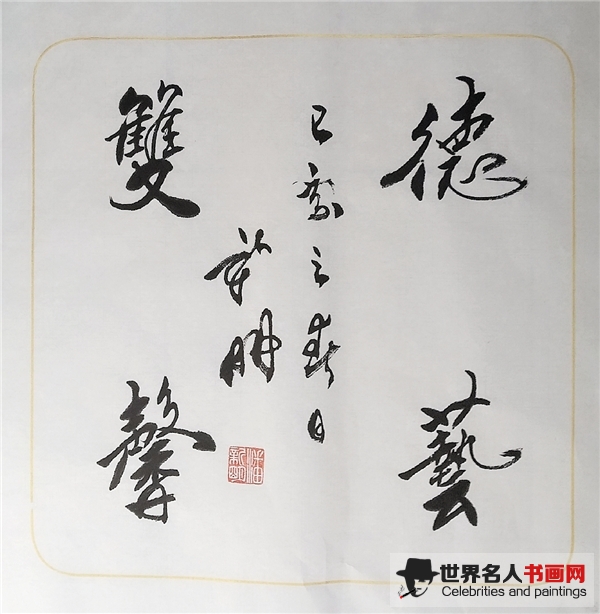 德藝
雙馨
己亥之春日
世界名人书画网
Celebrities and paintings